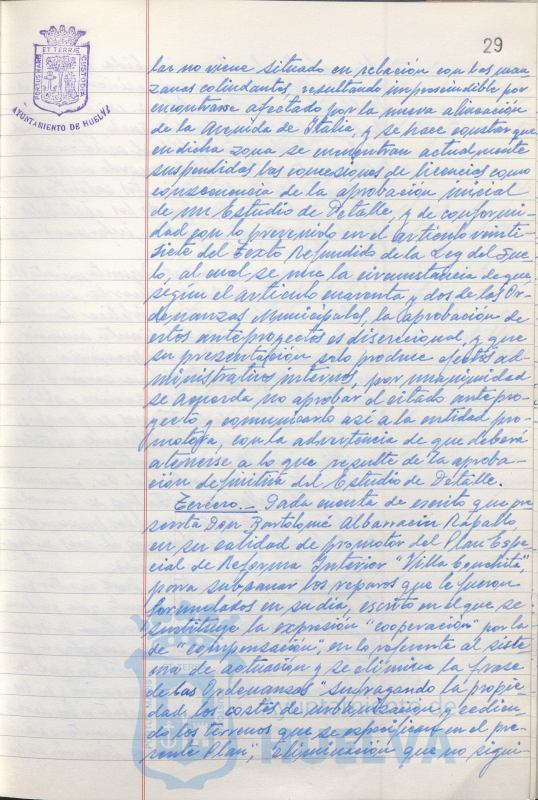 29
PORTUS MARIS ET TERRAE CUSTODIA
AYUNTAMIENTO DE HUELVA
lar no viene situado en relación con las man-
zanas colindantes, resultando imprescindible por
encontrarse afectado por la nueva alineación
de la Avenida de Italia, y se hace constar que
en dicha zona se encuentran actualmente
suspendidas las concesiones de licencias como
consecuencia de la aprobación inicial
de un Estudio de Detalle, y de conformi-
dad con lo prevenido en el artículo veinti-
siete del Texto Refundido de la Ley del Sue-
lo, al cual se une la circunstancia de que
según el artículo cuarenta y dos de las Or-
denanzas Municipales, la aprobación de
estos anteproyectos es discrecional, y que
su presentación solo produce efectos ad-
ministrativos internos, por unanimidad
se acuerda no aprobar el citado antepro-
yecto y comunicarlo así a la entidad pro-
motora, con la advertencia de que deberá
atenerse a lo que resulte de la aproba-
ción definitiva del Estudio de Detalle.
Tercero.- Dada cuenta de escrito que pre
senta Don Bartolomé Albarracín Rapallo,
en su calidad de promotor del Plan Espe
cial de Reforma Interior "Villa Conchita",
para subsanar los reparos que le fueron
formulados en su día, escrito en el que se
sustituye la expresión "cooperación" por la
de "compensación", en lo referente al siste
ma de actuación y se elimina la frase
de las Ordenanzas "sufragando la propie
dad los costes de urbanización y cedien
do los terrenos que se especifican en el pre
sente Plan", eliminación que no signi-
HUELVA